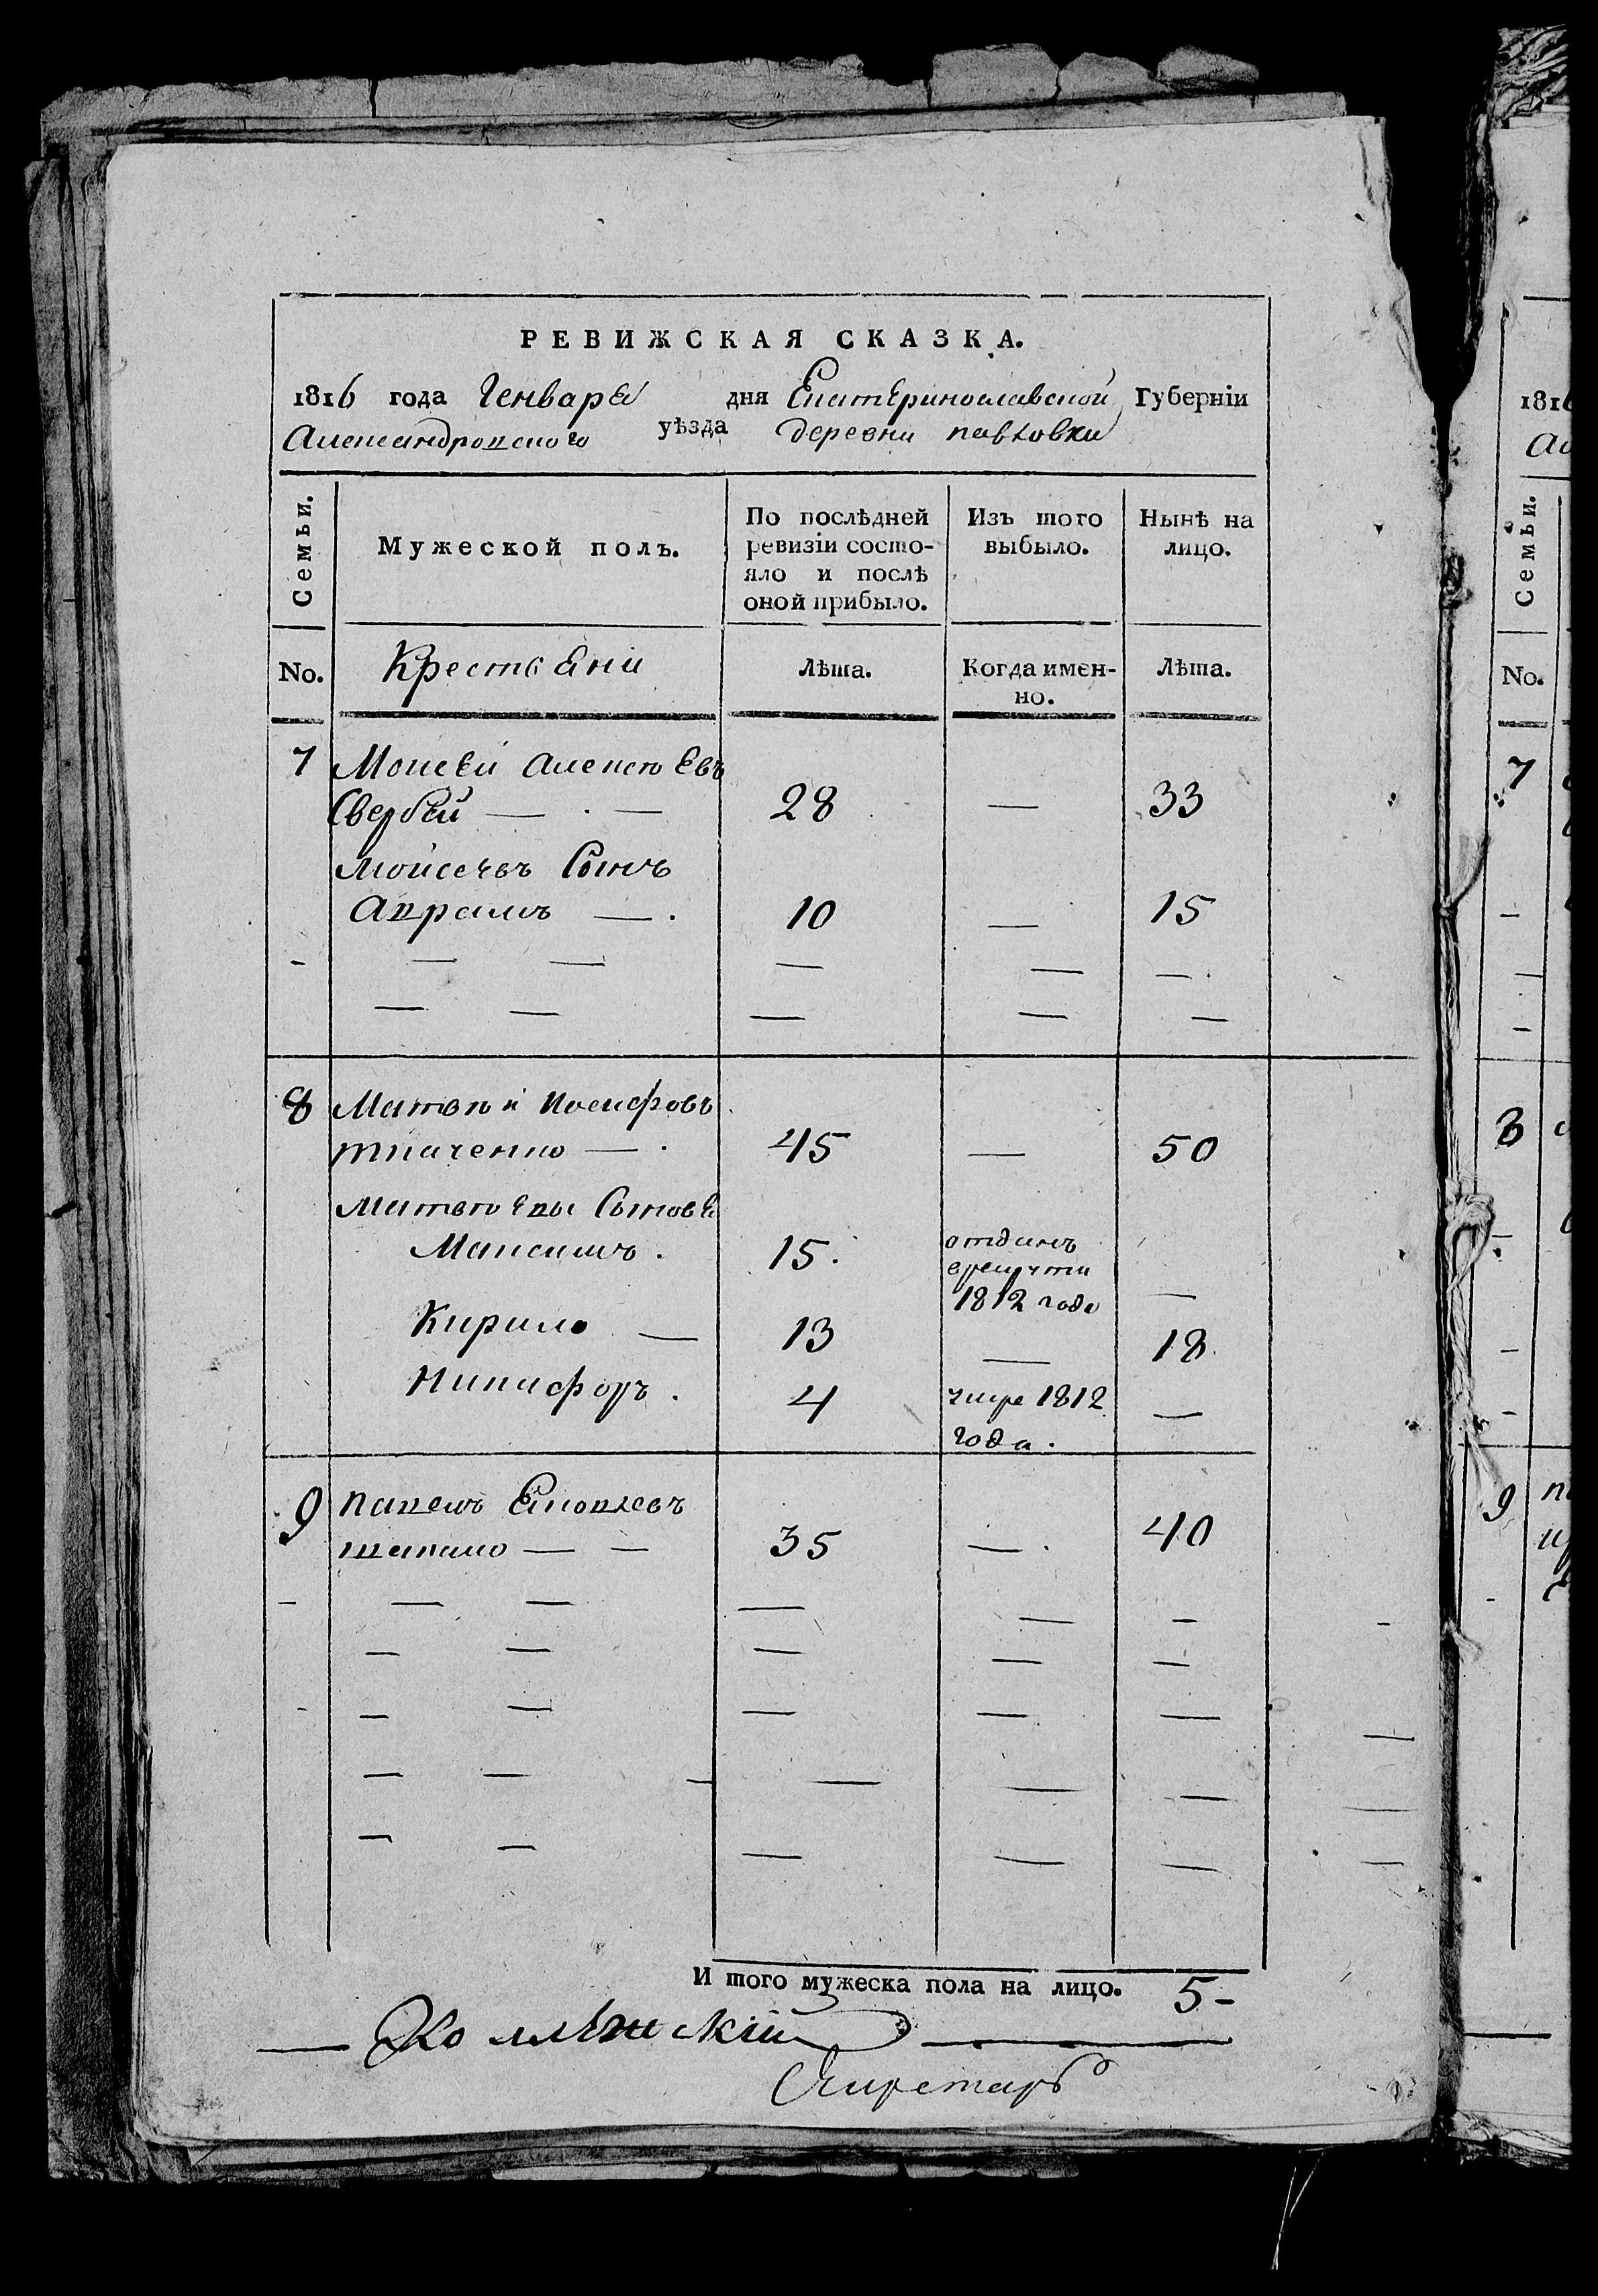 РЕВИЖСКАЯ СКАЗКА.
1816 года Генваря дня Екатеринославской Губерніи
Александровского уѣзда деревни павловки
Семьи.
Мужеской полъ.
По послѣдней ревизіи состо-яло и послѣ оной прибыло.
Изъ того выбыло.
Нынѣ на лицо.
No.
Крестьяни
Лѣта.
Когда имен-но.
Лѣта.
7 Моисей алексѣевъ
Свербей — · — 28 — 33
Мойсеевъ Сынъ
Аврамъ — . 10 — 15
8 Матвѣй иосифовъ
ткаченко — . 45 — 50
Матвѣевы Сыновья
Максимъ . 15 . отданъ
врекруты
1812 года —
Кирило — 13 — 18
Никифоръ . 4 умре 1812 —
года .
9 павелъ Яковлевъ
шапало — — 35 — . 40
И того мужеска пола на лицо. 5 -
Секретарь
1816
Семьи.
No.
7
8
9